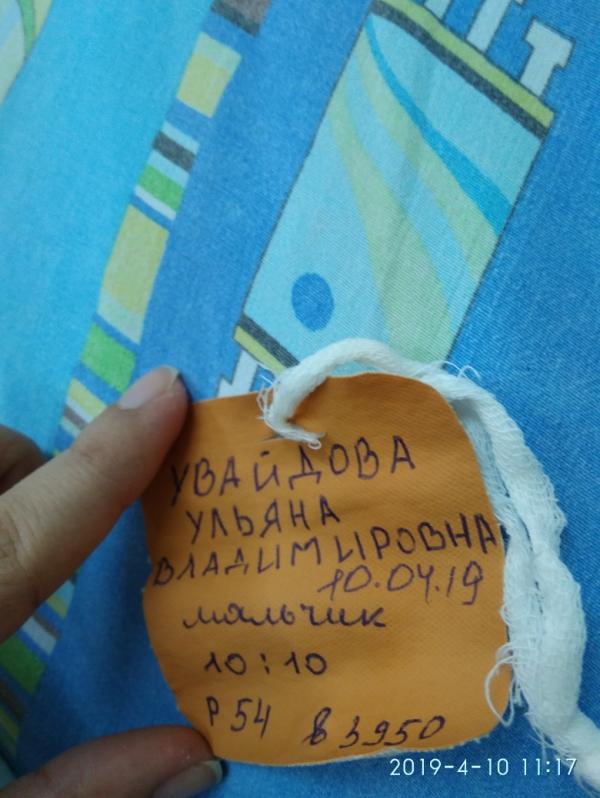 УВАЙДОВА
УЛЬЯНА
ВЛАДИМИРОВНА
10.04.19
мальчик
10:10
Р 54 в 3950
2019-4-10 11:17